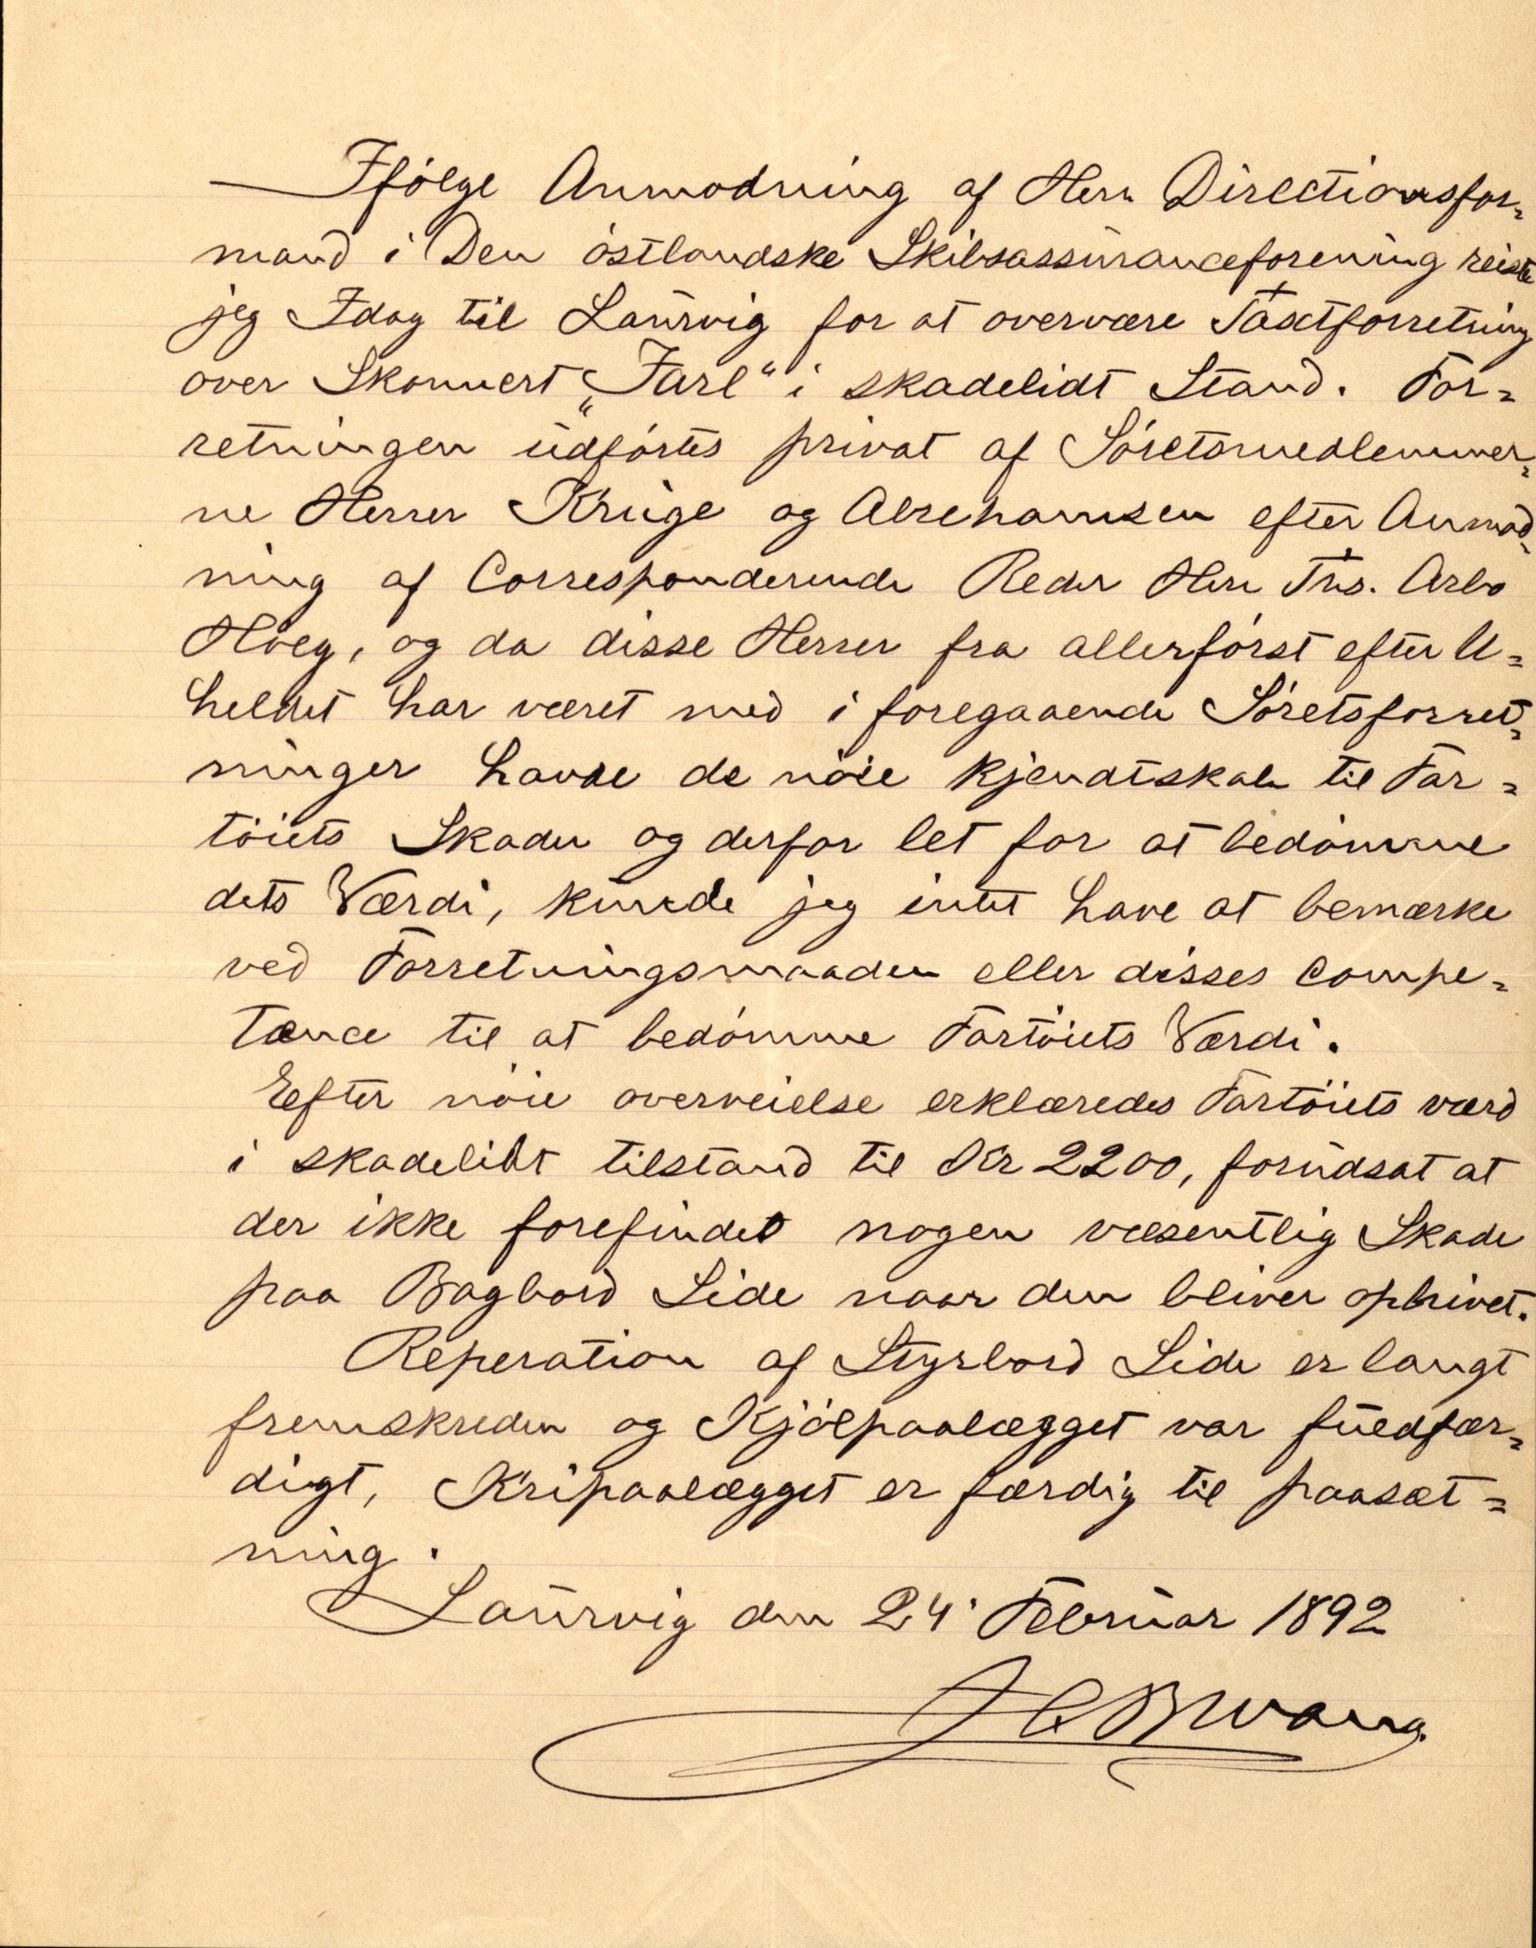 Ifölge Anmodning af Herr Directionsfor-
mand i Den östlandske Skibsassuranceforening reiste
jeg Idag til Laurvig for at overvære Taxtforretning
over Skonnert „Jarl“ i skadelidt Stand. For-
retningen udförtes privat af Söretsmedlemmer-
ne Herrer Kruge og Abrehamsen efter Anmod-
ning af Corresponderende Reder Herr Ths. Arbo
Höeg, og da disse Herrer fra allerförst efter U-
heldet har været med i foregaaende Söretsforret-
ninger havde de nöie kjendtskab til Far-
töiets Skader og derfor let for at bedömme
dets Værdi, kunde jeg intet have at bemærke
ved Forretningsmaaden eller disses compe-
tance til at bedömme Fartöiets Værdi.
Eefter nöie overveielse erklæredes Fartöiets værd
i skadelidt tilstand til Kr 2200, forudsat at
der ikke forefindet nogen væsentlig Skade
paa Bagbord Side naar den bliver ophivet.
Reperation af Styrbord Side er langt
fremskreden og Kjölpaalægget var fuldfær-
digt, Kripaalægget er færdig til paasæt-
ning.
Laurvig den 24' Februar 1892